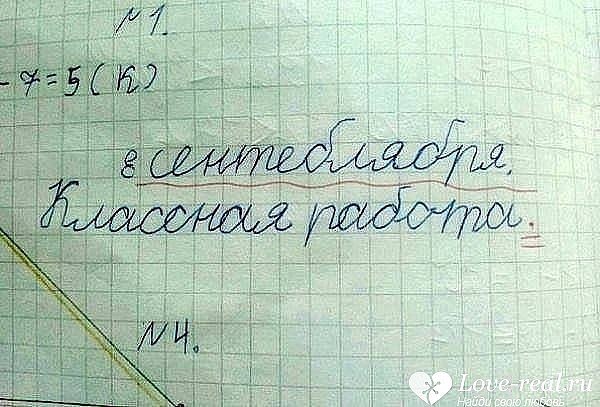 №1.
- 7=5 (к)
8 сентеблября.
Классная работа.
№4.
Love-real.ru
Найди свою любовь